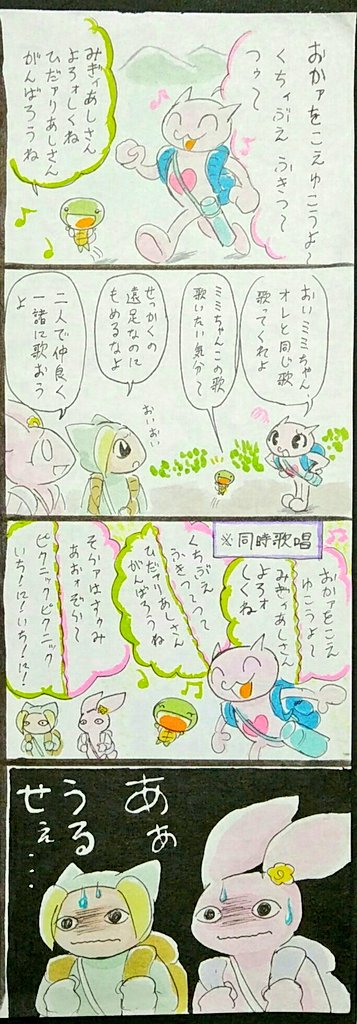 おかァをこえゆこうよ~
くちィぶえ ふきつ~
つゥ~
みぎィあしさん
よろォしくね
ひだァりあしさん
がんばろうね
おいミミちゃん
オレと同じ歌
歌ってくれよ
ミミちゃんこの歌
歌いたい気分~
せっかくの
遠足なのに
もめるなよ
おいおい
二人で仲良く
一諸に歌おう
よ
※同時歌唱
おかァをこえ
ゆこうよ~
みぎィあしさん
よろォ
しくね
くちィぶえ
ふきつ~つて
ひだァりあしさん
がんばろうね
そらァはすみ
あおォぞら~
ピクニックピクニック
いち!に!いち!に!
あぁ
うる
せぇ…